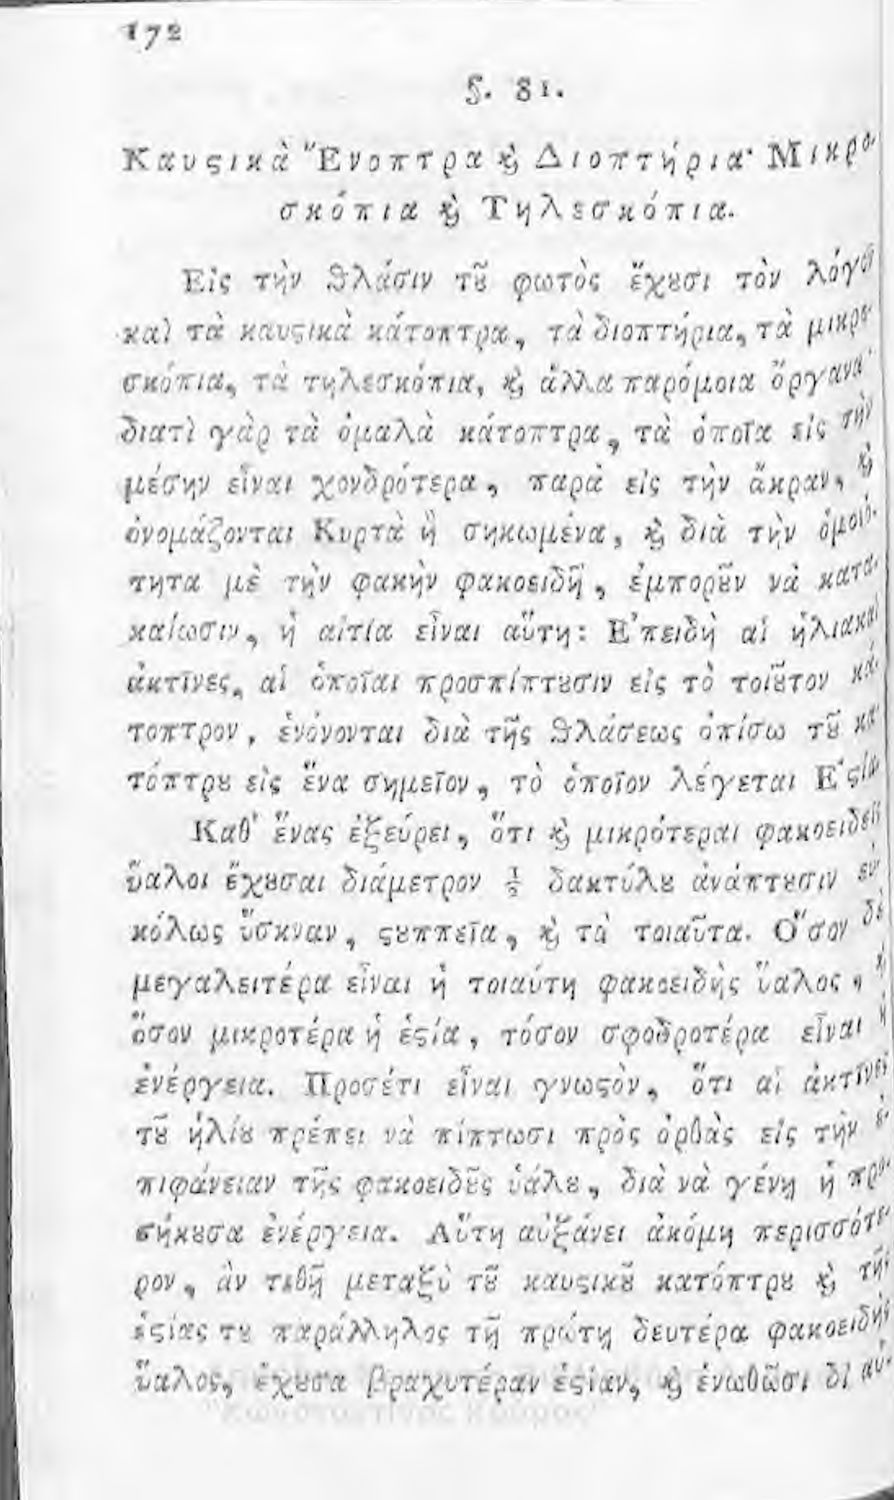 172
§. 81.
Καυϛικὰ Ἔνοπτρα ϗ Διοπτήρια· Μικρο-
σκόπια ϗ Τηλεσκόπια.
Εἰς τὴν ϑλάσιν τȣ͂ φωτὸς ἔχȣσι τὸν λόγον
καὶ τὰ καυϛικὰ κάτοπτρα, τὰ διοπτήρια, τὰ μικρο-
σκόπια, τὰ τηλεσκόπια, ϗ ἄλλα παρόμοια ὄργανα·
διατὶ γὰρ τὰ ὁμαλὰ κάτοπτρα, τὰ ὁποῖα εἰς τὴν
μέσην εἶναι χονδρότερα, παρὰ εἰς τὴν ἄκραν, ϗ
ὀνομάζονται Κυρτὰ ἢ σηκωμένα, ϗ διὰ τὴν ὁμοιό-
τητα μὲ τὴν φακὴν φακοειδῆ, ἐμπορȣ͂ν νὰ κατα-
καίωσιν, ἡ αἰτία εἶναι αὕτη: Ἐπειδὴ αἱ ἡλιακαὶ
ἀκτῖνες, αἱ ὁποῖαι προσπίπτȣσιν εἰς τὸ τοιȣ͂τον κά-
τοπτρον, ἑνόνονται διὰ τῆς ϑλάσεως ὀπίσω τȣ͂ κα-
τόπτρȣ εἰς ἕνα σημεῖον, τὸ ὁποῖον λέγεται Ἑϛία.
Καθ' ἕνας ἐξεύρει, ὅτι ϗ μικρότεραι φακοειδεῖς
ὕαλοι ἔχȣσαι διάμετρον ½ δακτύλȣ ἀνάπτȣσιν εὐ-
κόλως ὕσκναν, ϛȣππεῖα, ϗ τὰ τοιαῦτα. Ὅσον δὲ
μεγαλειτέρα εἶναι ἡ τοιαύτη φακοειδὴς ὕαλος, ϗ
ὅσον μικροτέρα ἡ ἑϛία, τόσον σφοδροτέρα εἶναι ἡ
ἐνέργεια. Προσέτι εἶναι γνωϛὸν, ὅτι αἱ ἀκτῖνες
τȣ͂ ἡλίȣ πρέπει νὰ πίπτωσι πρὸς ὀρθὰς εἰς τὴν ἐ-
πιφάνειαν τῆς φακοειδȣ͂ς ὑάλȣ, διὰ νὰ γένῃ ἡ προ-
σήκȣσα ἐνέργεια. Αὕτη αὐξάνει ἀκόμη περισσότε-
ρον, ἂν τεθῇ μεταξὺ τȣ͂ καυϛικȣ͂ κατόπτρȣ ϗ τῆς
ἑϛίας τȣ παράλληλος τῇ πρώτῃ δευτέρα φακοειδὴς
ὕαλος, ἔχȣσα βραχυτέραν ἑϛίαν, ϗ ἑνωθῶσι δι' αὐ-